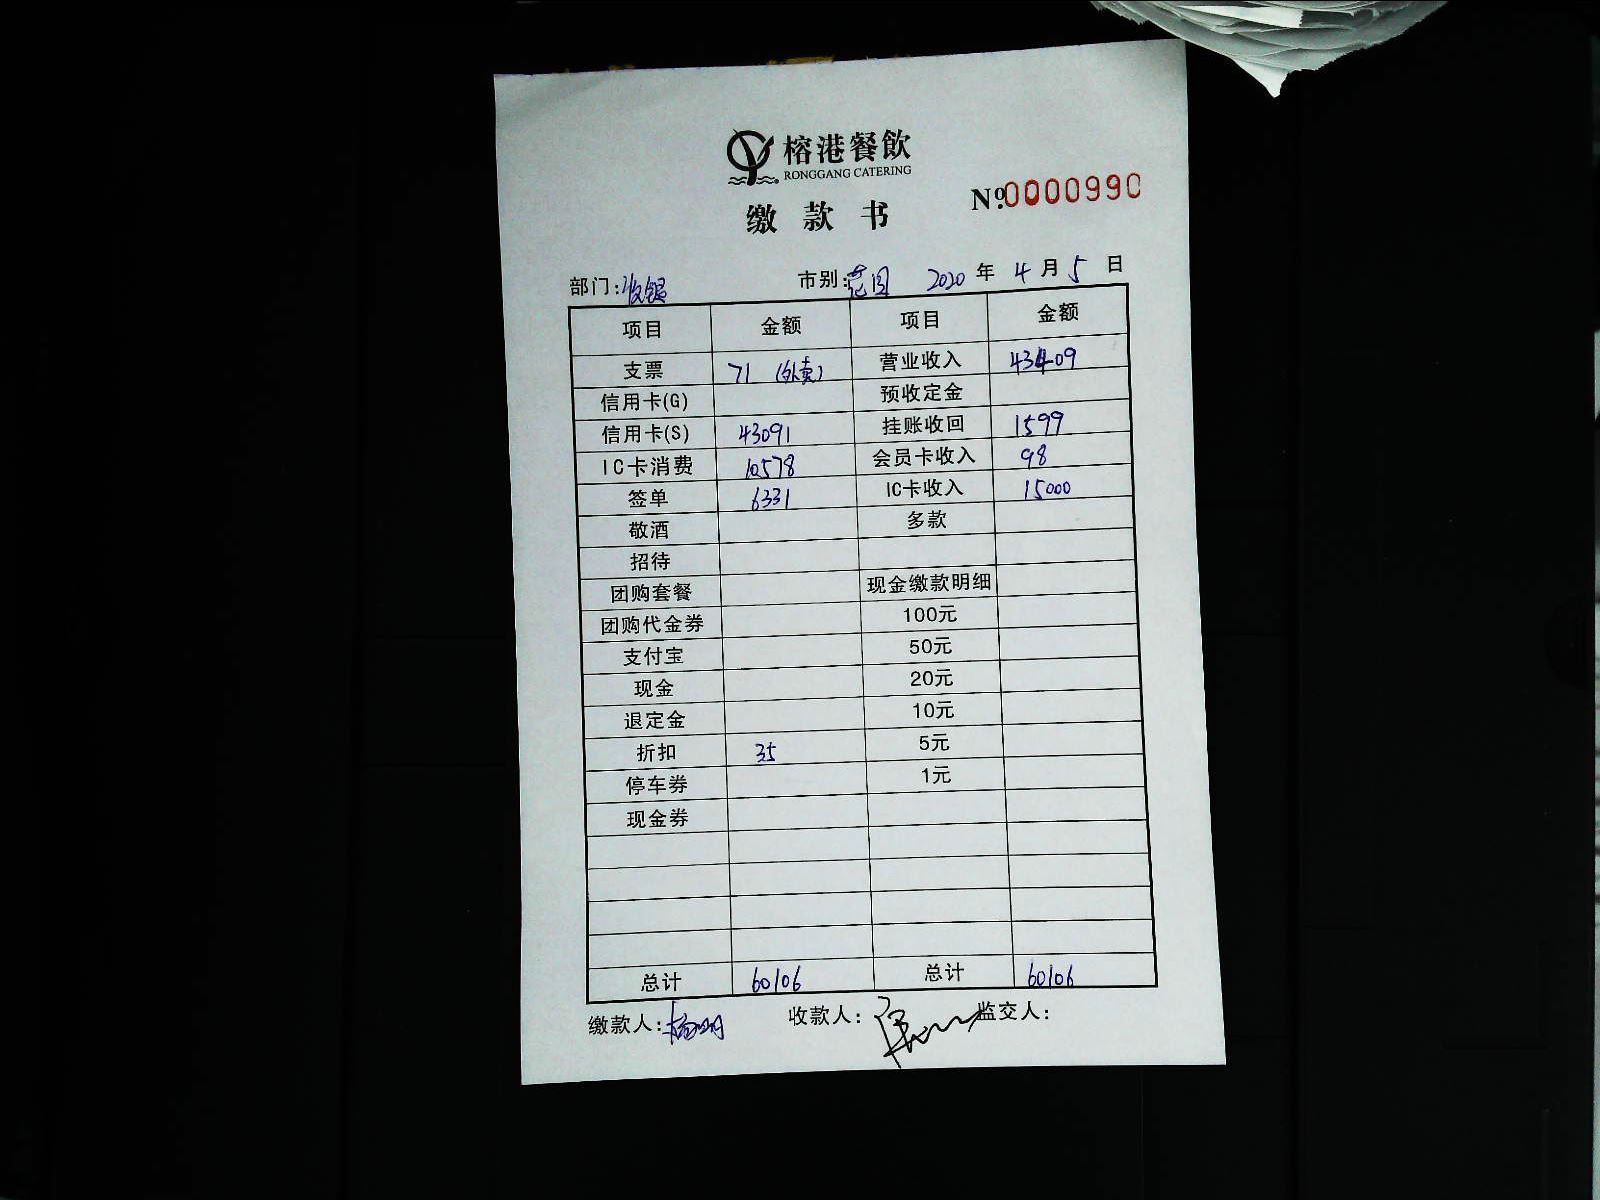 榕港餐飲
RONGGANG CATERING
缴款书 Nº.0000990
部门:收银 市别:范围 2020年4月5日
项目 金额 项目 金额
支票 71 (外卖) 营业收入 43409
信用卡(G) 预收定金
信用卡(S) 43091 挂账收回 1599
IC卡消费 10578 会员卡收入 98
签单 6331 IC卡收入 15000
敬酒 多款
招待
团购套餐 现金缴款明细
团购代金券 100元
支付宝 50元
现金 20元
退定金 10元
折扣 35 5元
停车券 1元
现金券
总计 60106 总计 60106
缴款人: 收款人: 监交人: